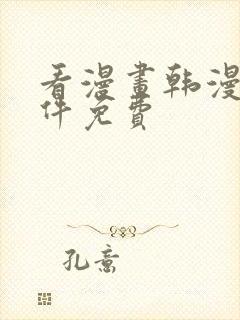 看漫畫韩漫
件免費
孔意